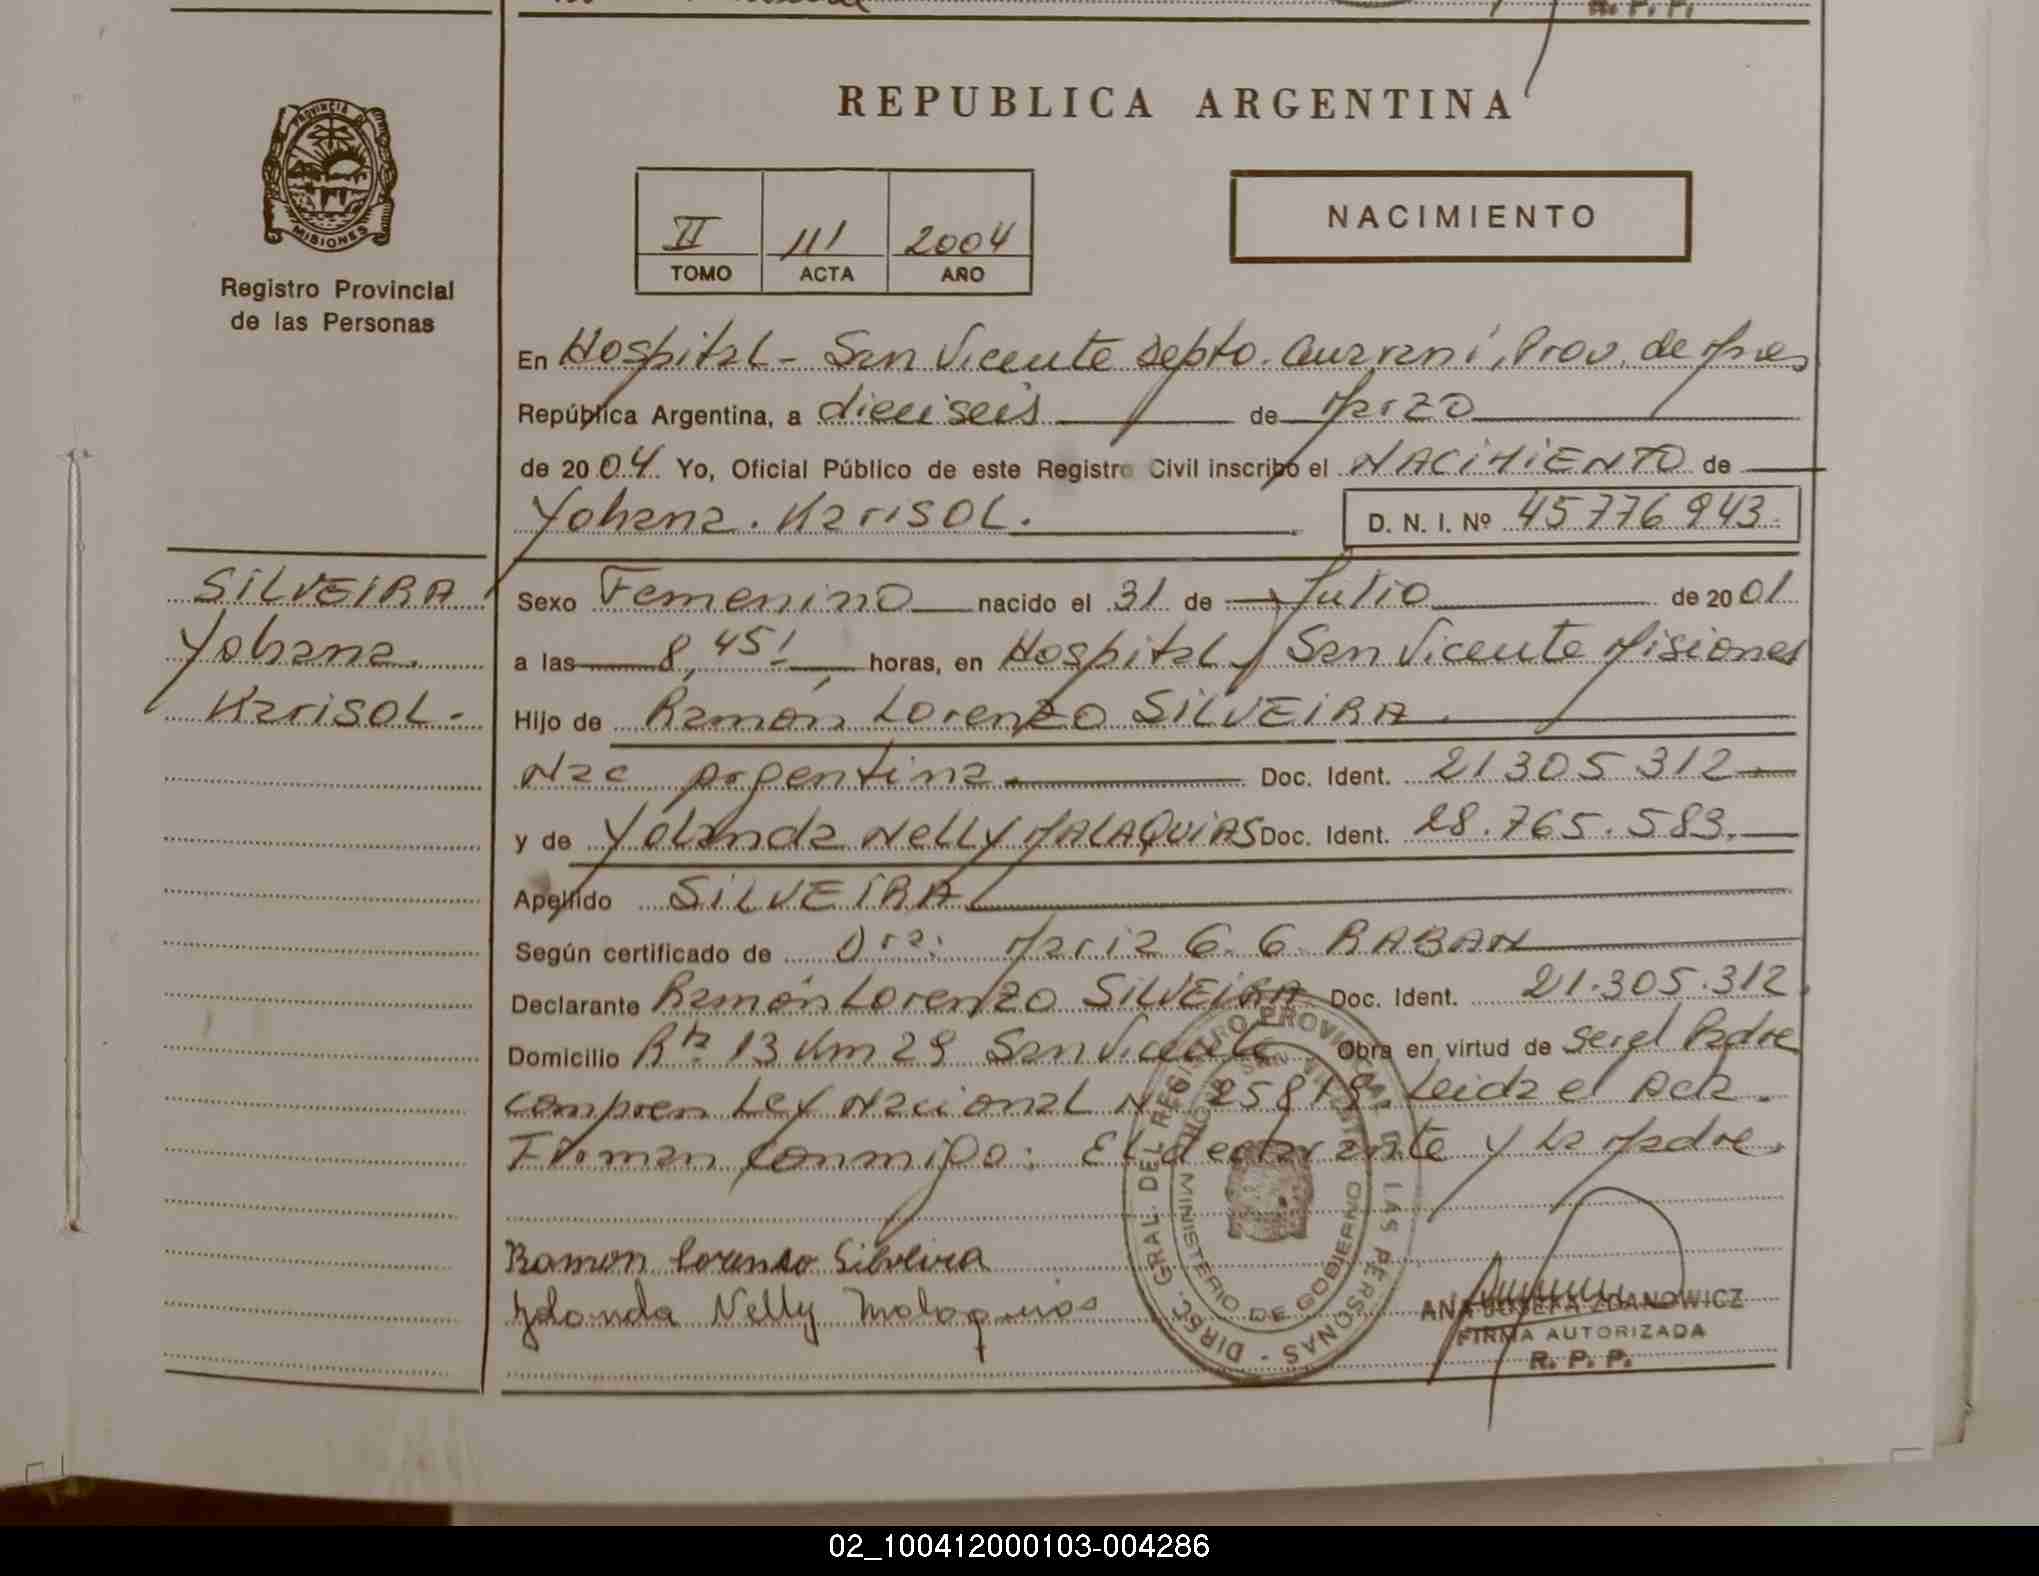 REPUBLICA ARGENTINA
PROVINCIA DE
MISIONES
Registro Provincial
de las Personas
II 111 2004
TOMO ACTA AÑO
NACIMIENTO
En Hospital - San Vicente Depto. Guaraní, Prov. de Mnes
República Argentina, a dieciseis de Marzo
de 2004. Yo, Oficial Público de este Registro Civil inscribo el NACIMIENTO de
Yohana. Marisol. D. N. I. Nº 45776943.
SILVEIRA
Yohana.
Marisol.-
Sexo Femenino nacido el 31 de Julio de 2001
a las 8,45 horas, en Hospital San Vicente Misiones
Hijo de Ramón Lorenzo SILVEIRA
Nac argentina. Doc. Ident. 21305312
y de Yolanda Nelly MALAQUIAS Doc. Ident. 28.765.583.
Apellido SILVEIRA
Según certificado de Dra: Maria G. G. RABAN
Declarante Ramón Lorenzo SILVEIRA Doc. Ident. 21.305.312
Domicilio Rta 13 Km 29 San Vicente Obra en virtud de ser el Padre
compren Ley Nacional N 25819. Leida el Acta.
Firman conmigo: El declarante y la Madre.
Ramon Lorenzo Silveira
Yolanda Nelly Malaquias
DIREC. GRAL. DEL REGISTRO PROVINCIAL DE LAS PERSONAS -
MINISTERIO DE GOBIERNO
ANA JOSEFA ZDANOWICZ
FIRMA AUTORIZADA
R. P. P.
02_100412000103-004286